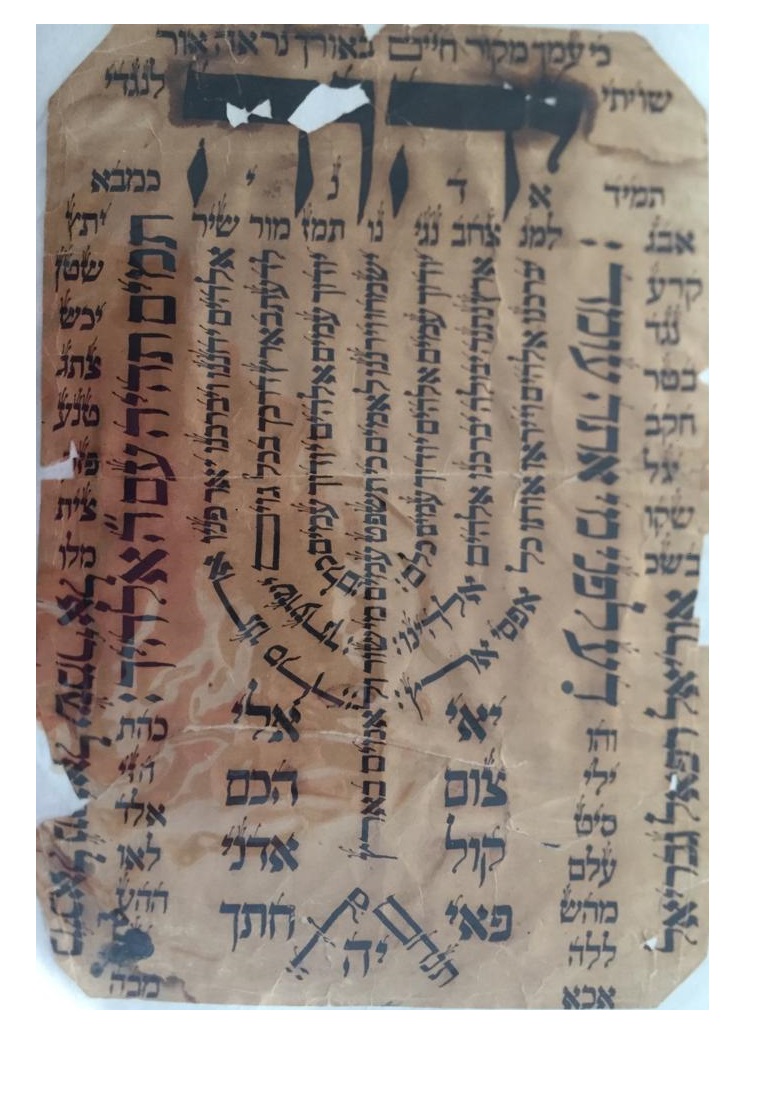 כי עמך מקור חיים באורך נראה אור
שויתי יהוה לנגדי
תמיד א ד נ י כמבא
למנ צחב נגי נו תמז מור שיר
אבג יתץ
קרע שטן
נגד יכש
בטר צתג
חקב טנע
יגל
שקו צית
דע לפני מי אתה עומד
יברכנו אלהים וייראו אותו כל אפסי א
ארץ נתנה יבולה יברכנו אלהים אלהינו
יודוך עמים אלהים יודוך עמים כלם
ישמחו וירננו לאמים כי תשפט עמים מישור ולאמים בארץ תנחם סלה
יודוך עמים אלהים יודוך עמים כלם
לדעת בארץ דרכך בכל גוים ישועתך
אלהים יחננו ויברכנו יאר פניו אתנו סלה
תמים תהיה עם ה' אלהיך
אוריאל
יאי אלי
צום הכם
קול אדני
פאי חתך
יה
והו כהת
ילי הזי
סיט אלד
עלם לאו
מהש ההע
ללה
אכא מבה